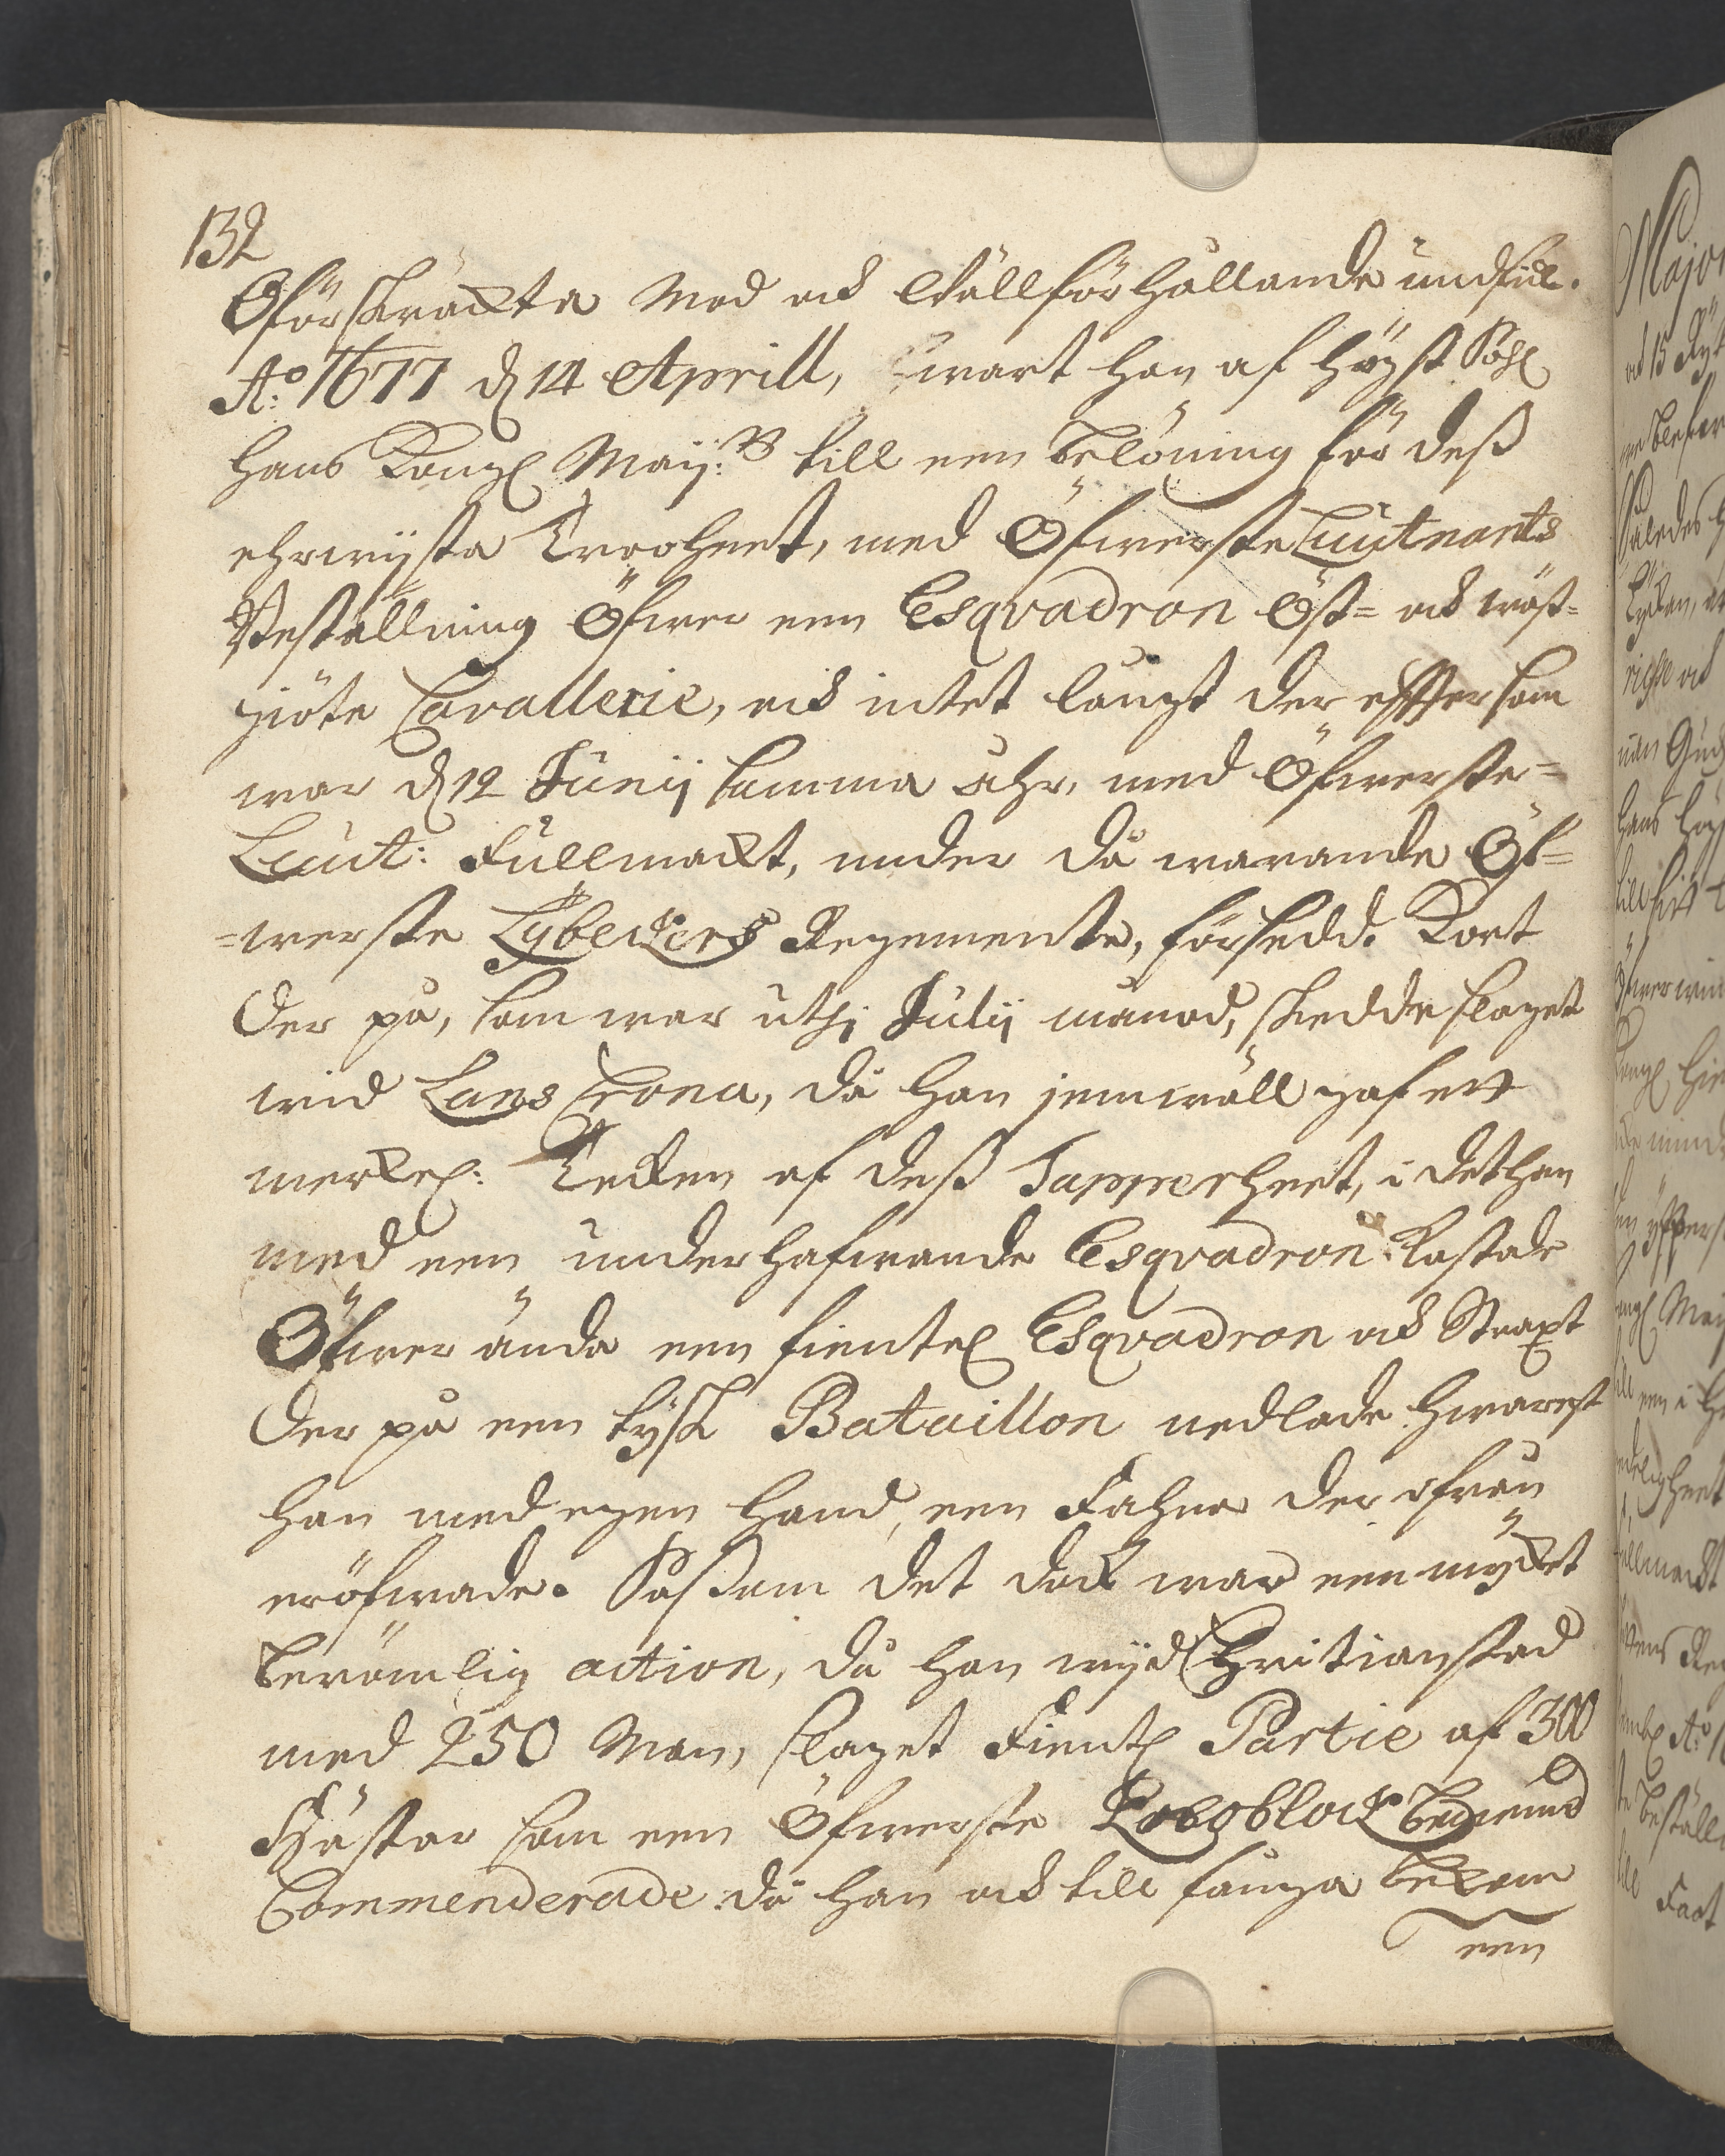 132
Oförskräckta Mod och Wällförhållande undfick.
A:o 1677 d 14 Aprill, wart han af Högst Sahl
Hans Kongl Maij:tt till een belöning för deß
ehrwijsta Trooheet, med Öfwerste Luitnants
Beställning Öfwer een Esqvadron Öst= och wäst=
giöte Cavallerie, och intet långt der effter som
war d 12 Junij samma åhr, med Öfwerste=
Luit: Fullmackt, under då warande Öf=
=werste Lybeckers Regemente, försedd. Kort
Der på, som war uthi Julij månad, skedde slaget
wid Lans Crona, då han jemwäll gaf ett
merkel: Tecken af deß Tapperheet, i det han
med een underhafwande Esqvadron kastade
Öfwer ända een fientel Esqvadron och Straxt
Der på een tysk Bataillon nedlade hwarest
han med egen hand, een Fahna der ifrån
eröfwrade. Såssom det dock war een mycket
berömlig action, då han wijd Christianstad
med 250 Man, slaget Fientl Partie af 300
Hästar som een Öfwerste bediend
Commenderade. då han och till fånga bekom
een